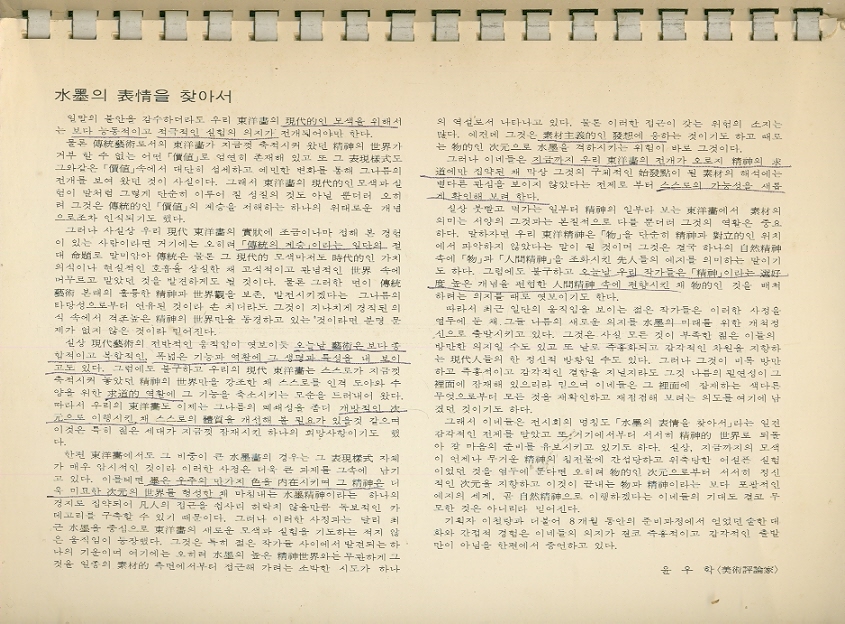 水墨의 表情을 찾아서
일말의 불안을 감수하더라도 우리 東洋畵의 現代的인 모색을 위해서
는 보다 능동적이고 적극적인 실험의 의지가 전개되어야만 한다.
물론 傳統藝術로서의 東洋畵가 지금껏 축적시켜 왔던 精神의 世界가
거부 할 수 없는 어떤 「價値」로 엄연히 존재해 있고 또 그 表現様式도
그와같은 「價値」속에서 대단히 섬세하고 예민한 변화를 통해 그나름의
전개를 보여 왔던 것이 사실이다. 그래서 東洋畵의 現代的인 모색과 실
험이 말처럼 그렇게 단순히 이루어 질 성질의 것도 아닐 뿐더러 오히
려 그것은 傳統的인 「價値」의 계승을 저해하는 하나의 위태로운 개념
으로조차 인식되기도 했다.
그러나 사실상 우리 現代 東洋畵의 實狀에 조금이나마 접해 본 경험
이 있는 사람이라면 거기에는 오히려 「傳統의 계승」이라는 일단의 절
대 命題로 말미암아 傳統은 물론 그 現代的 모색마저도 時代的인 가치
의식이나 현실적인 호흡을 상실한 채 고식적이고 관념적인 世界 속에
머무르고 말았던 것을 발견하게도 될 것이다. 물론 그러한 면이 傳統
藝術 본래의 훌륭한 精神과 世界觀을 보존, 발전시키겠다는 그나름의
타당성으로부터 연유된 것이라 손 치더라도 그것이 지나치게 경직된 의
식 속에서 격조높은 精神의 世界만을 동경하고 있는 것이라면 분명 문
제가 없지 않은 것이라 믿어진다.
실상 現代藝術의 전반적인 움직임이 엿보이듯 오늘날 藝術은 보다 종
합적이고 복합적인, 폭넓은 기능과 역할에 그 생명과 특질을 내 보이
고도 있다. 그럼에도 불구하고 우리의 現代 東洋畵는 스스로가 지금껏
축적시켜 놓았던 精神의 世界만을 강조한 채 스스로를 인격 도야와 수
양을 위한 求道的 역할에 그 기능을 축소시키는 모순을 드러내어 왔다.
따라서 우리의 東洋畵도 이제는 그나름의 폐쇄성을 좀더 개방적인 次
元으로 이행시킨 채 스스로의 體質을 개선해 볼 필요가 있을것 같으며
이것은 특히 젊은 세대가 지금껏 잠재시킨 하나의 희망사항이기도 했
다.
한편 東洋畵에서도 그 비중이 큰 水墨畵의 경우는 그 表現様式 자체
가 매우 암시적인 것이라 이러한 사정은 더욱 큰 과제를 그속에 남기
고 있다. 이를테면 墨은 우주의 만가지 色을 內在시키며 그 精神은 더
욱 미묘한 次元의 世界를 형성한 채 마침내는 水墨精神이라는 하나의
경지로 집약되어 凡人의 접근을 쉽사리 허락치 않을만큼 독보적인 카
테고리를 구축할 수 있기 때문이다. 그러나 이러한 사정과는 달리 최
근 水墨을 중심으로 東洋畵의 새로운 모색과 실험을 기도하는 적지 않
은 움직임이 등장했다. 그것은 특히 젊은 작가들 사이에서 발견되는 하
나의 기운이며 여기에는 오히려 水墨의 높은 精神世界와는 무관하게 그
것을 일종의 素材的 측면에서부터 접근해 가려는 소박한 시도가 하나
의 역설로서 나타나고 있다. 물론 이러한 접근이 갖는 위험의 소지는
많다. 예컨데 그것은 素材主義的인 發想에 응하는 것이기도 하고 때로
는 物的인 次元으로 水墨을 격하시키는 위험이 바로 그것이다.
그러나 이네들은 지금까지 우리 東洋畵의 전개가 오로지 精神의 求
道에만 집약된 채 막상 그것의 구체적인 始發點이 될 素材의 해석에는
별다른 관심을 보이지 않았다는 전제로 부터 스스로의 가능성을 새롭
게 확인해 보려 한다.
실상 붓빨고 먹가는 일부터 精神의 일부라 보는 東洋畵에서 素材의
의미는 서양의 그것과는 본질적으로 다를 뿐더러 그것의 역할은 중요
하다. 말하자면 우리 東洋精神은 「物」을 단순히 精神과 對立的인 위치
에서 파악하지 않았다는 말이 될 것이며 그것은 결국 하나의 自然精神
속에 「物」과 「人間精神」을 조화시킨 先人들의 예지를 의미하는 말이기
도 하다. 그럼에도 불구하고 오늘날 우리 작가들은 「精神」이라는 選好
度 높은 개념을 편협한 人間精神 속에 편향시킨 채 物的인 것을 배척
하려는 의지를 때로 엿보이기도 한다.
따라서 최근 일단의 움직임을 보이는 젊은 작가들은 이러한 사정을
염두에 둔 채 그들 나름의 새로운 의지를 水墨의 미래를 위한 개척정
신으로 출발시키고 있다. 그것은 사실 모든 것이 부족한 젊은 이들의
방만한 의지일 수도 있고 또 날로 즉흥화되고 감각적인 차원을 지향하
는 現代人들의 한 정신적 방황일 수도 있다. 그러나 그것이 비록 방만
하고 즉흥적이고 감각적인 결함을 지닐지라도 그것 나름의 필연성이 그
裡面에 잠재해 있으리라 믿으며 이네들은 그 裡面에 잠재하는 색다른
무엇으로부터 모든 것을 재확인하고 재점검해 보려는 의도를 여기에 남
겼던 것이기도 하다.
그래서 이네들은 전시회의 명칭도 「水墨의 表情을 찾아서」라는 일견
감각적인 전제를 달았고 또 거기에서부터 서서히 精神的 世界로 되돌
아 갈 마음의 준비를 유보시키고 있기도 하다. 실상, 지금까지의 모색
이 언제나 무거운 精神의 침전물에 잔설당하고 위축당한 어설픈 실험
이었던 것을 염두에 둔다면 오히려 物的인 次元으로부터 서서히 정신
적인 次元을 지향하고 이것이 끝내는 物과 精神이라는 보다 포괄적인
예지의 세계, 곧 自然精神으로 이행하겠다는 이네들의 기대도 결코 무
모한 것은 아니리라 믿어진다.
기획자 이철량과 더불어 8개월 동안의 준비과정에서 있었던 숱한 대
화와 간접적 경험은 이네들의 의지가 결코 즉흥적이고 감각적인 출발
만이 아님을 한편에서 증언하고 있다.
윤 우 학〈美術評論家〉